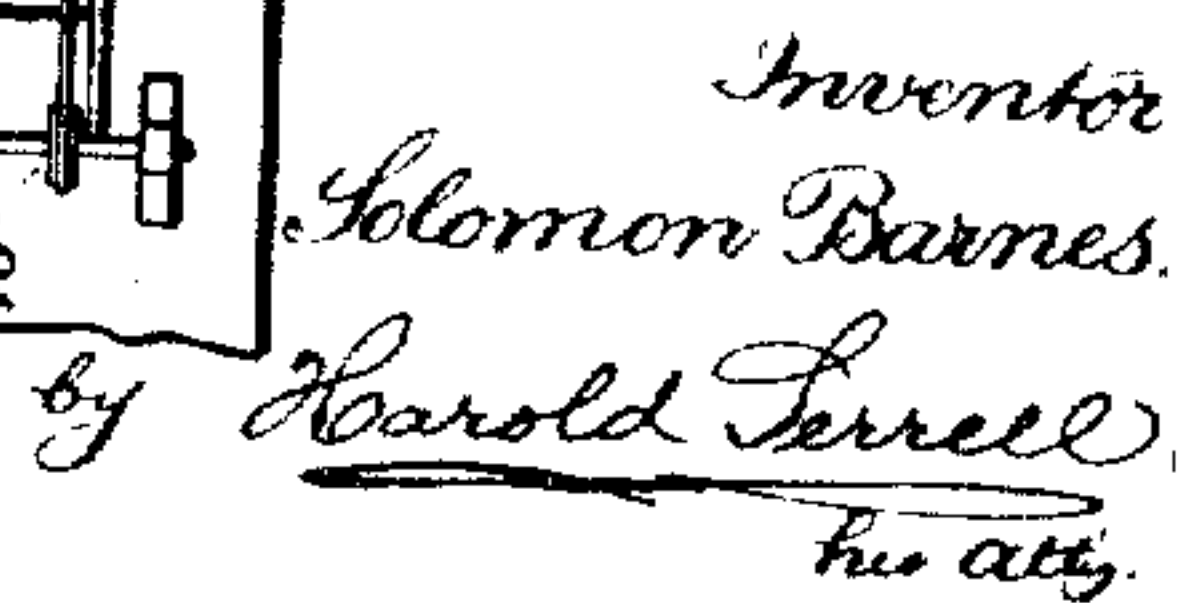 Inventor
Solomon Barnes.
by Harold Serrell
his atty.